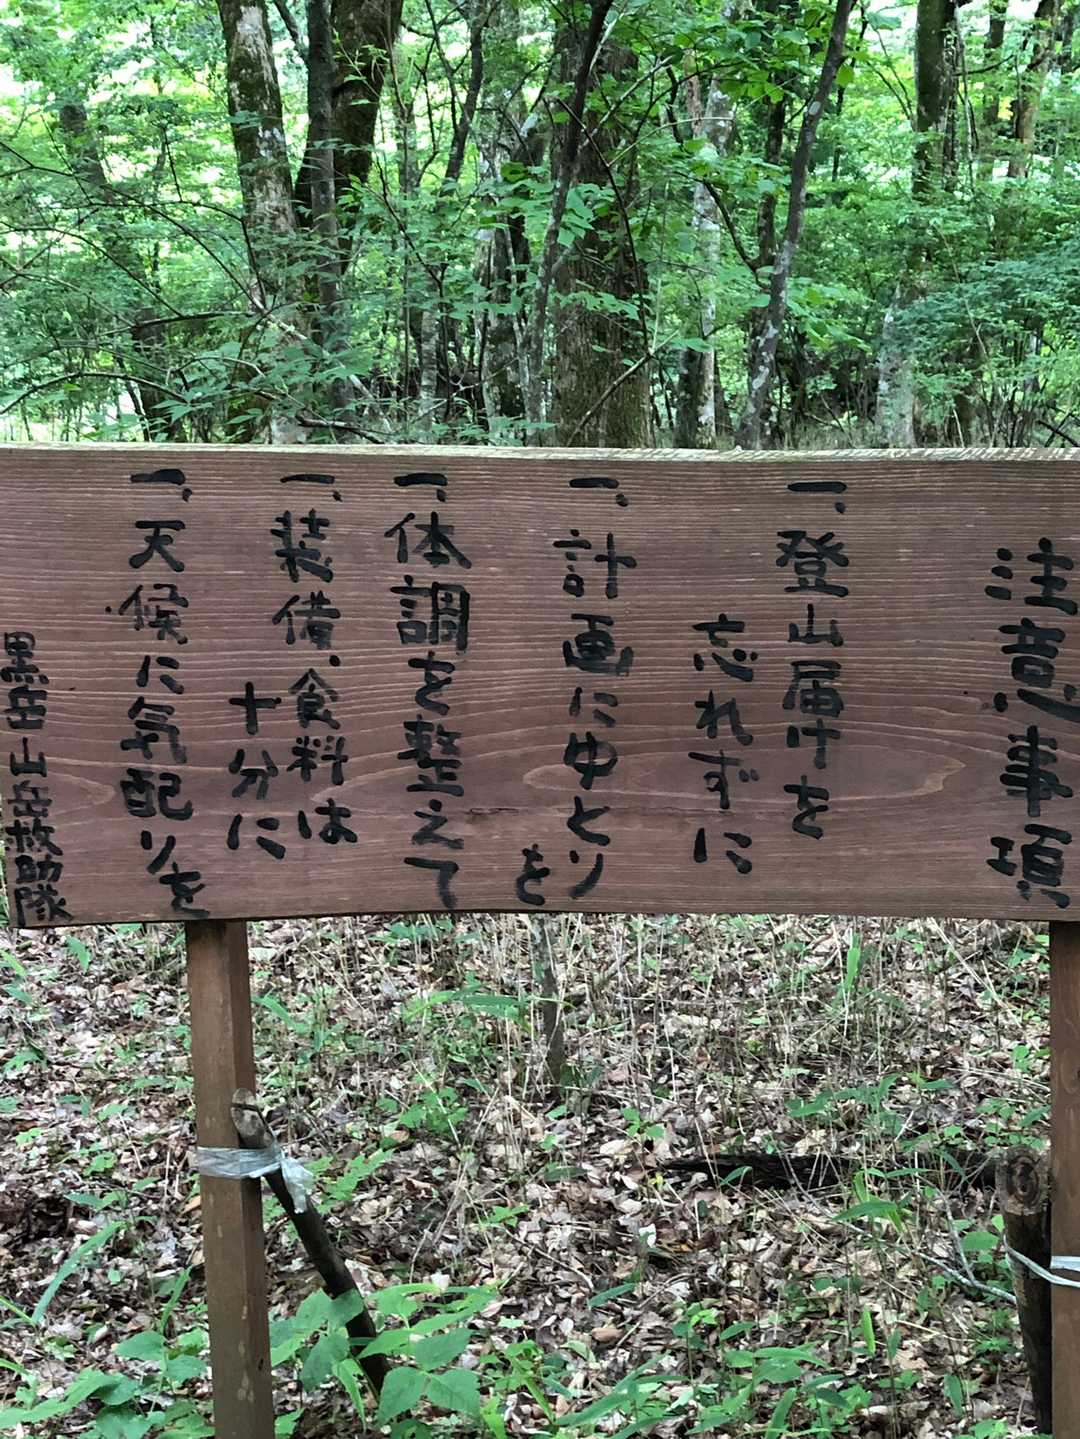 注意事項
一、登山届けを
忘れずに
一、計画にゆとり
を
一、体調を整えて
一、装備、食料は
十分に
一、天候に気配りを
黒岳山岳救助隊